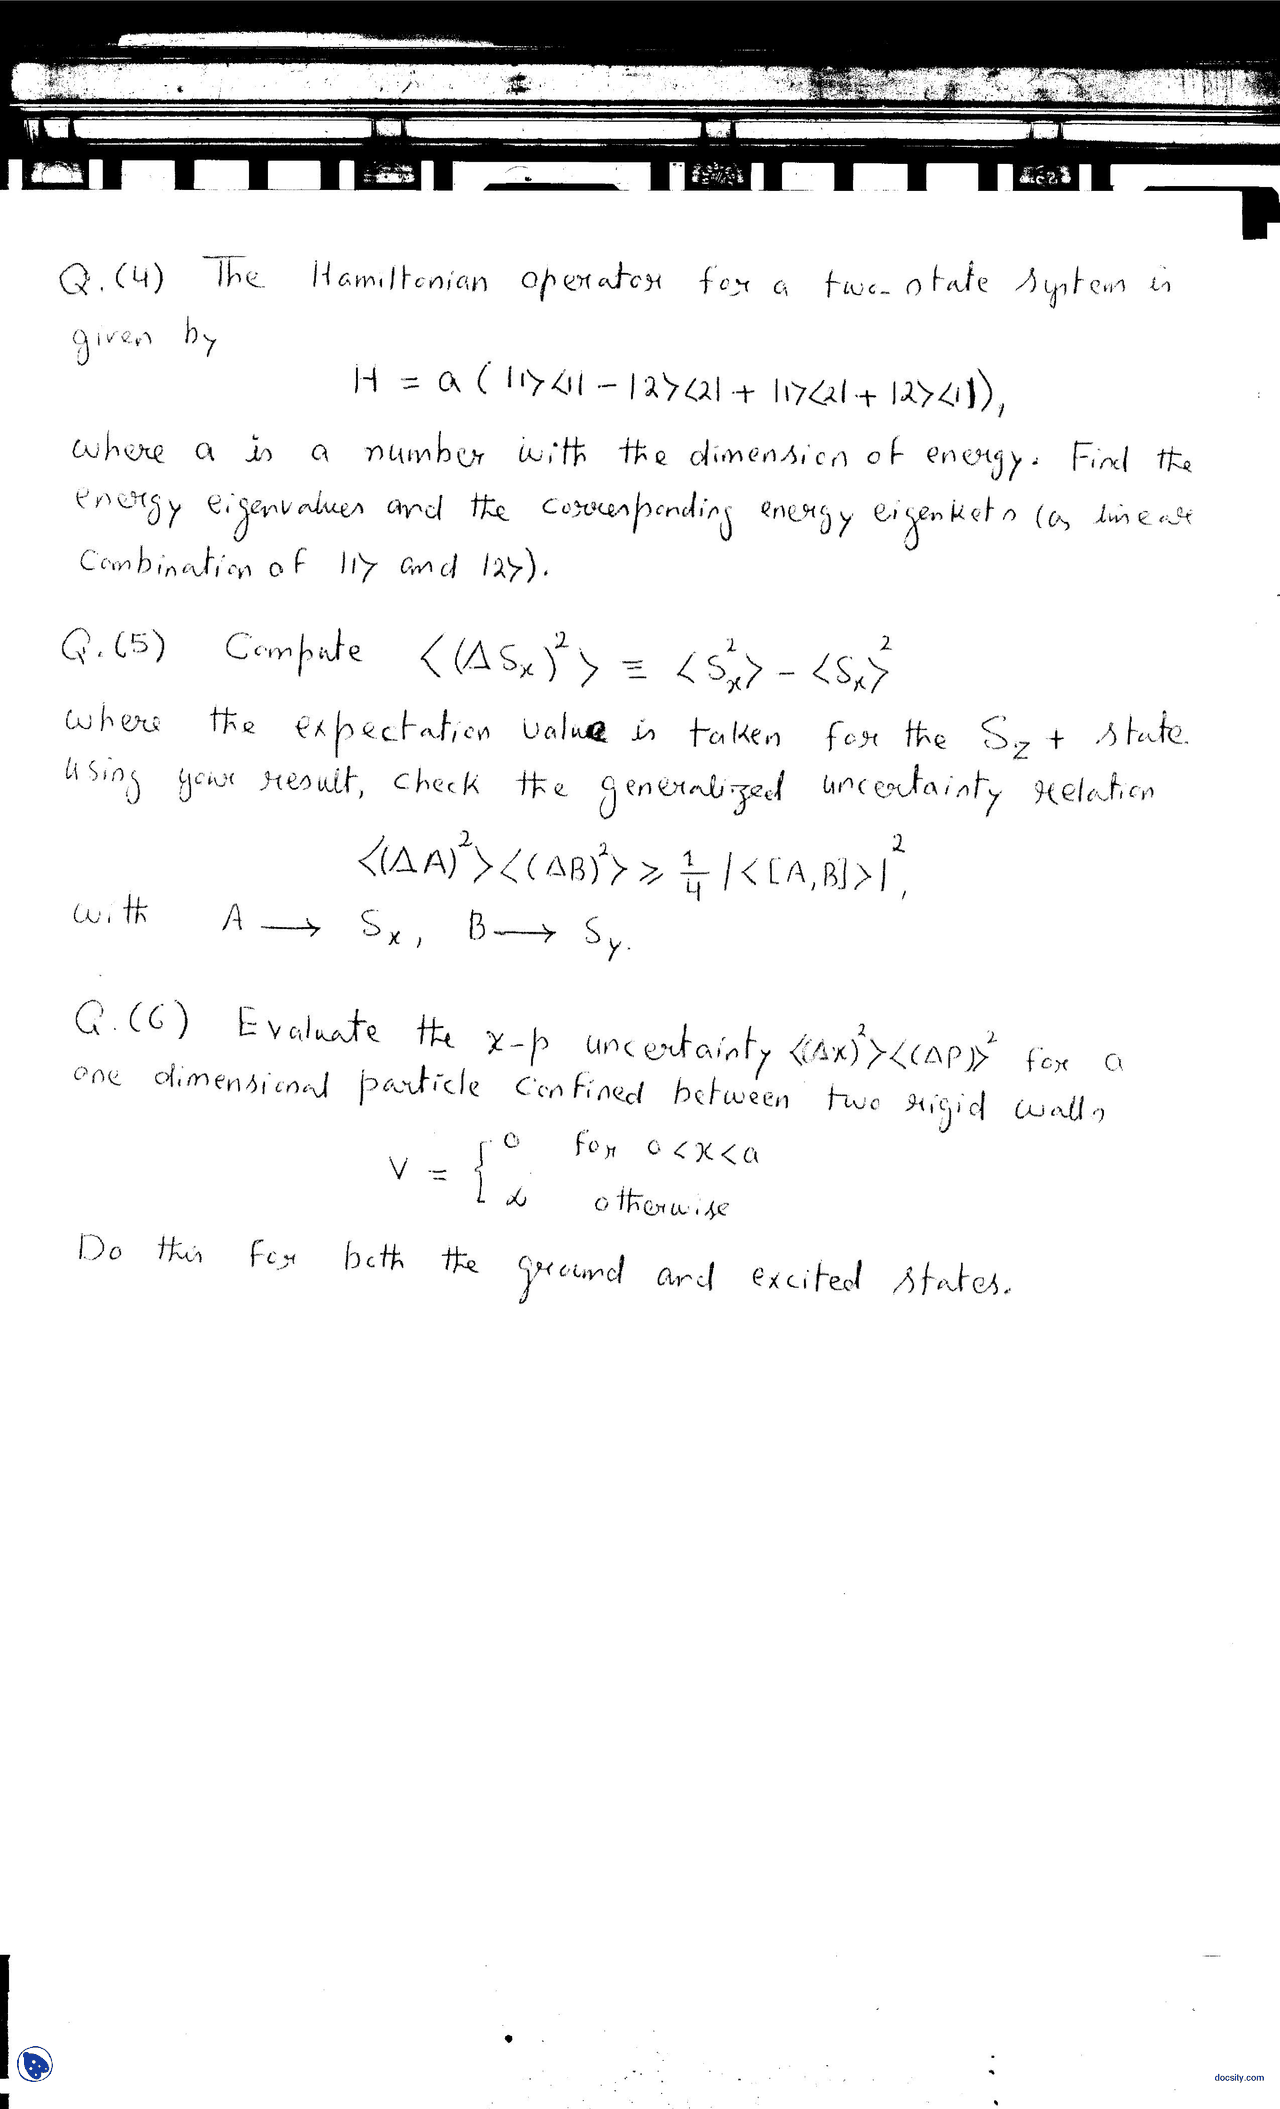 Q.(4) The Hamiltonian operator for a two-state system is
given by
H = a ( |1><1| - |2><2| + |1><2| + |2><1| ),
where a is a number with the dimension of energy. Find the
energy eigenvalues and the corresponding energy eigenkets (as linear
Combination of |1> and |2>).
Q.(5) Compute <(ΔSx)²> ≡ <Sx²> - <Sx>²
where the expectation value is taken for the Sz + state.
Using your result, check the generalized uncertainty relation
<(ΔA)²><(ΔB)²> ≥ 1/4 |<[A,B]>|²,
with A → Sx, B → Sy.
Q.(6) Evaluate the x-p uncertainty <(Δx)²><(ΔP)>² for a
one dimensional particle confined between two rigid walls
V = { 0 for 0<x<a
∞ otherwise
Do this for both the ground and excited states.
docsity.com